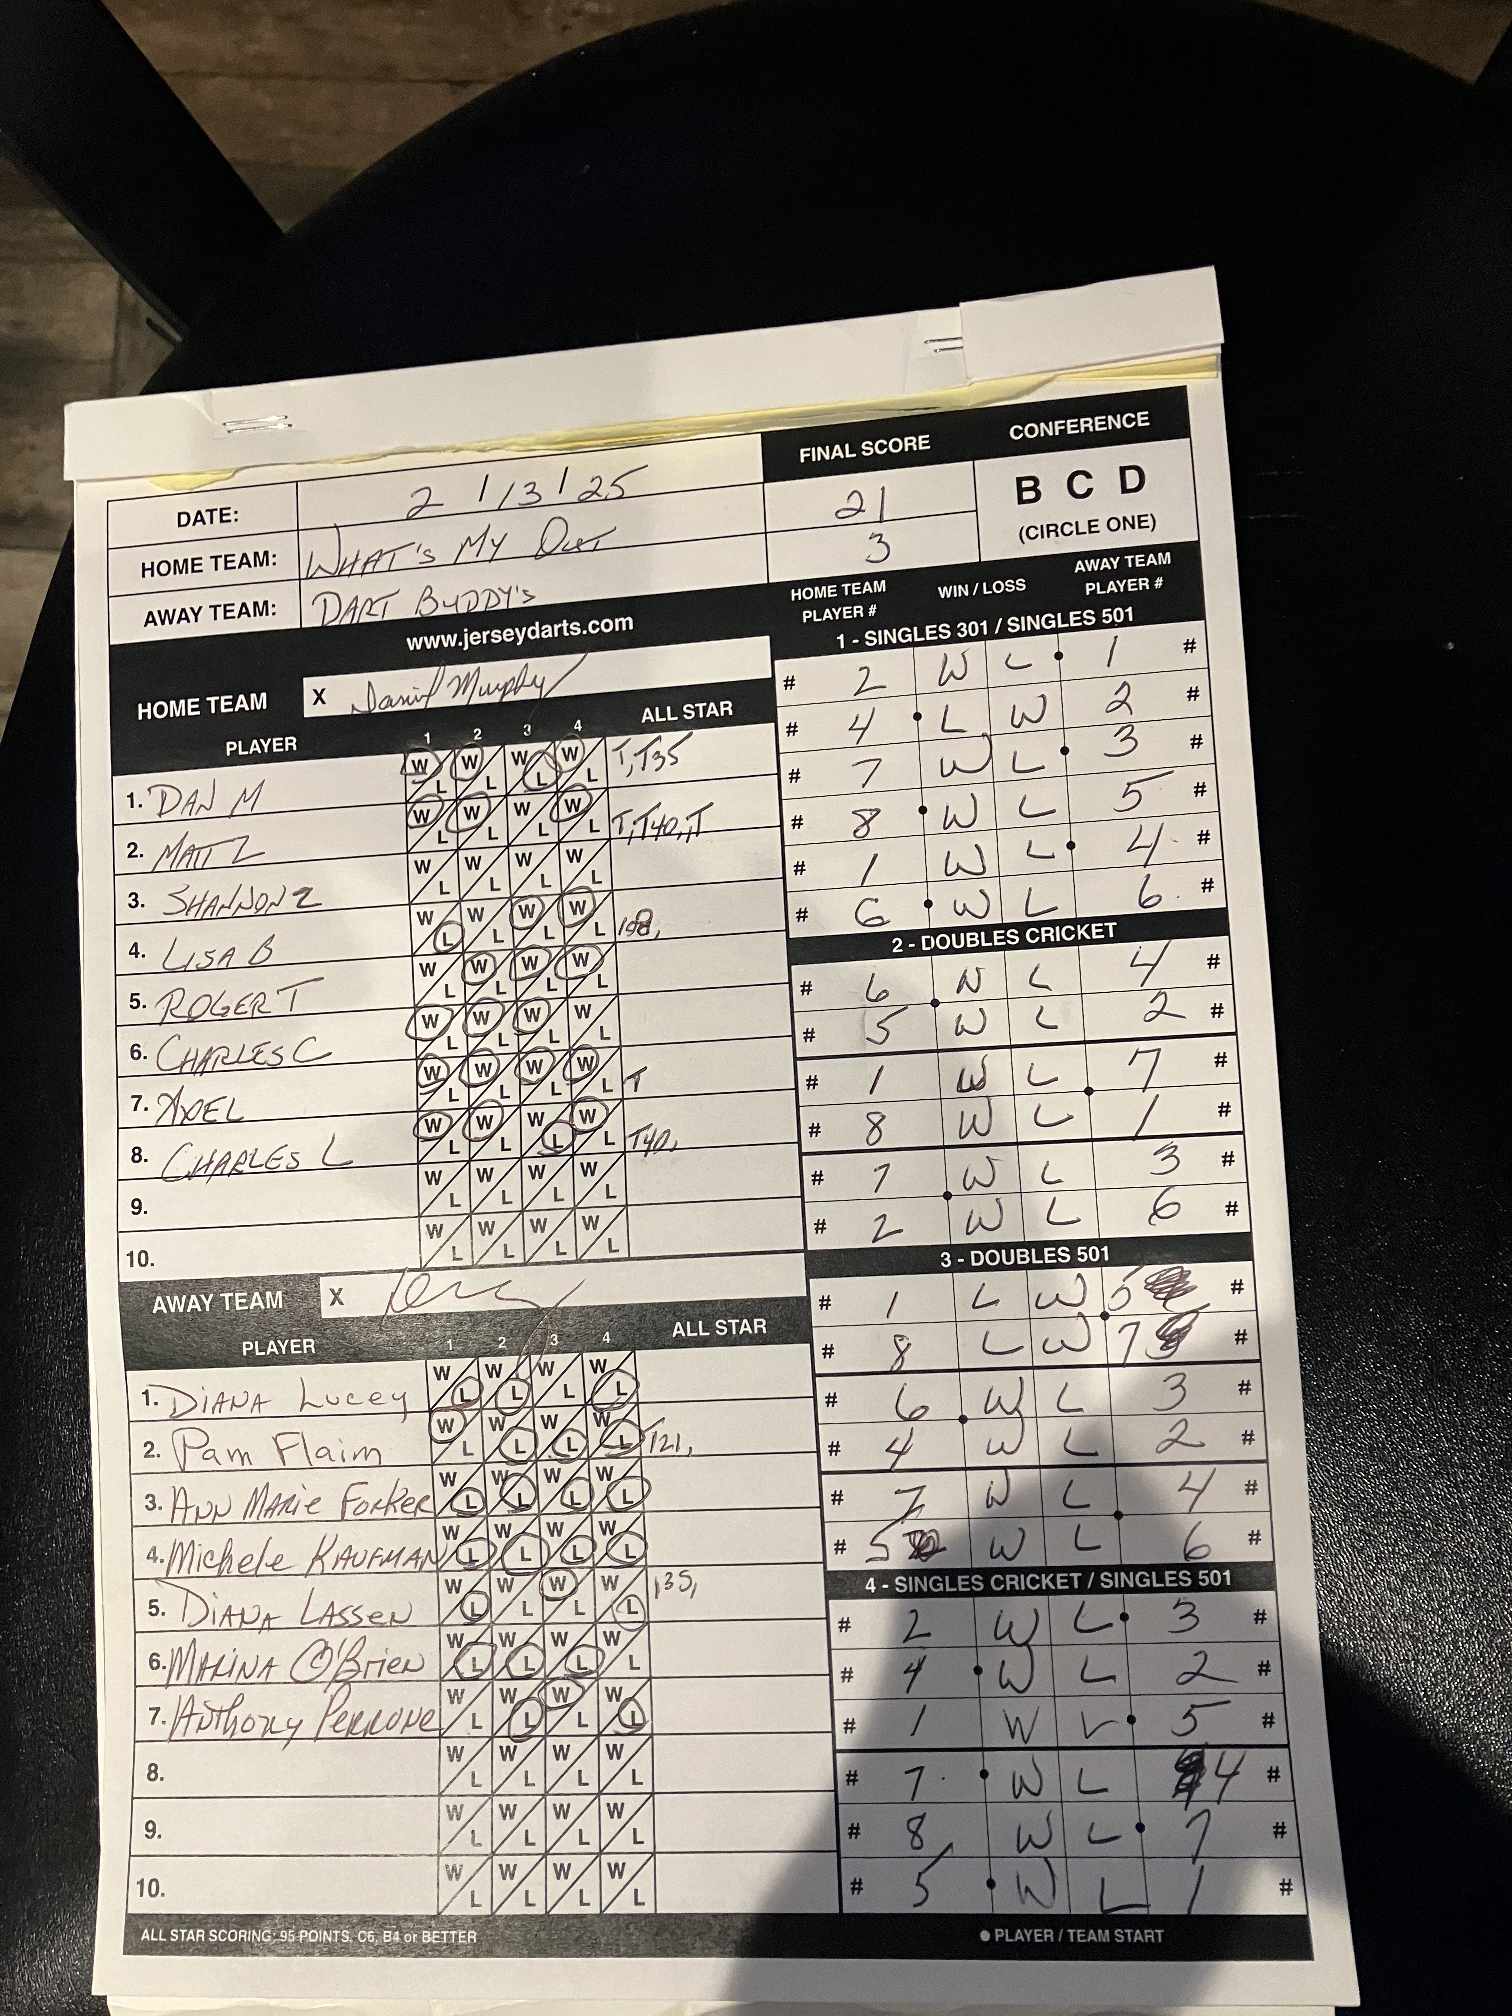 FINAL SCORE CONFERENCE
DATE: 2/13/25 21 B C D
HOME TEAM: WHAT'S MY OUT 3 (CIRCLE ONE)
AWAY TEAM: DART BUDDY'S
www.jerseydarts.com
HOME TEAM X Daniel Murphy
PLAYER 1 2 3 4 ALL STAR
1. DAN M W L W L W L W L T, T35
2. MATT Z W L W L W L W L T, T40, T
3. SHANNON Z W L W L W L W L
4. LISA B W L W L W L W L
5. ROGER T W L W L W L W L
6. CHARLES C W L W L W L W L
7. AXEL W L W L W L W L T
8. CHARLES L W L W L W L W L T40,
9. W L W L W L W L
10. W L W L W L W L
AWAY TEAM X
PLAYER 1 2 3 4 ALL STAR
1. DIANA Lucey W L W L W L W L
2. Pam Flaim W L W L W L W L T21,
3. ANN MARie Forker W L W L W L W L
4. Michele KAUFMAN W L W L W L W L
5. DIANA LASSEN W L W L W L W L ,35,
6. MARINA O'Brien W L W L W L W L
7. Anthony PERRONE W L W L W L W L
8. W L W L W L W L
9. W L W L W L W L
10. W L W L W L W L
ALL STAR SCORING: 95 POINTS, C6, B4 or BETTER
HOME TEAM PLAYER # WIN / LOSS AWAY TEAM PLAYER #
1 - SINGLES 301 / SINGLES 501
# 2 W L 1 #
# 4 L W 2 #
# 7 W L 3 #
# 8 W L 5 #
# 1 W L 4 #
# 6 W L 6 #
2 - DOUBLES CRICKET
# 6 W L 4 #
# 5 W L 2 #
# 1 W L 7 #
# 8 W L 1 #
# 7 W L 3 #
# 2 W L 6 #
3 - DOUBLES 501
# 1 L W 5 #
# 8 L W 7 #
# 6 W L 3 #
# 4 W L 2 #
# 7 W L 4 #
# 5 W L 6 #
4 - SINGLES CRICKET / SINGLES 501
# 2 W L 3 #
# 4 W L 2 #
# 1 W L 5 #
# 7 W L 4 #
# 8 W L 7 #
# 5 W L 1 #
● PLAYER / TEAM START